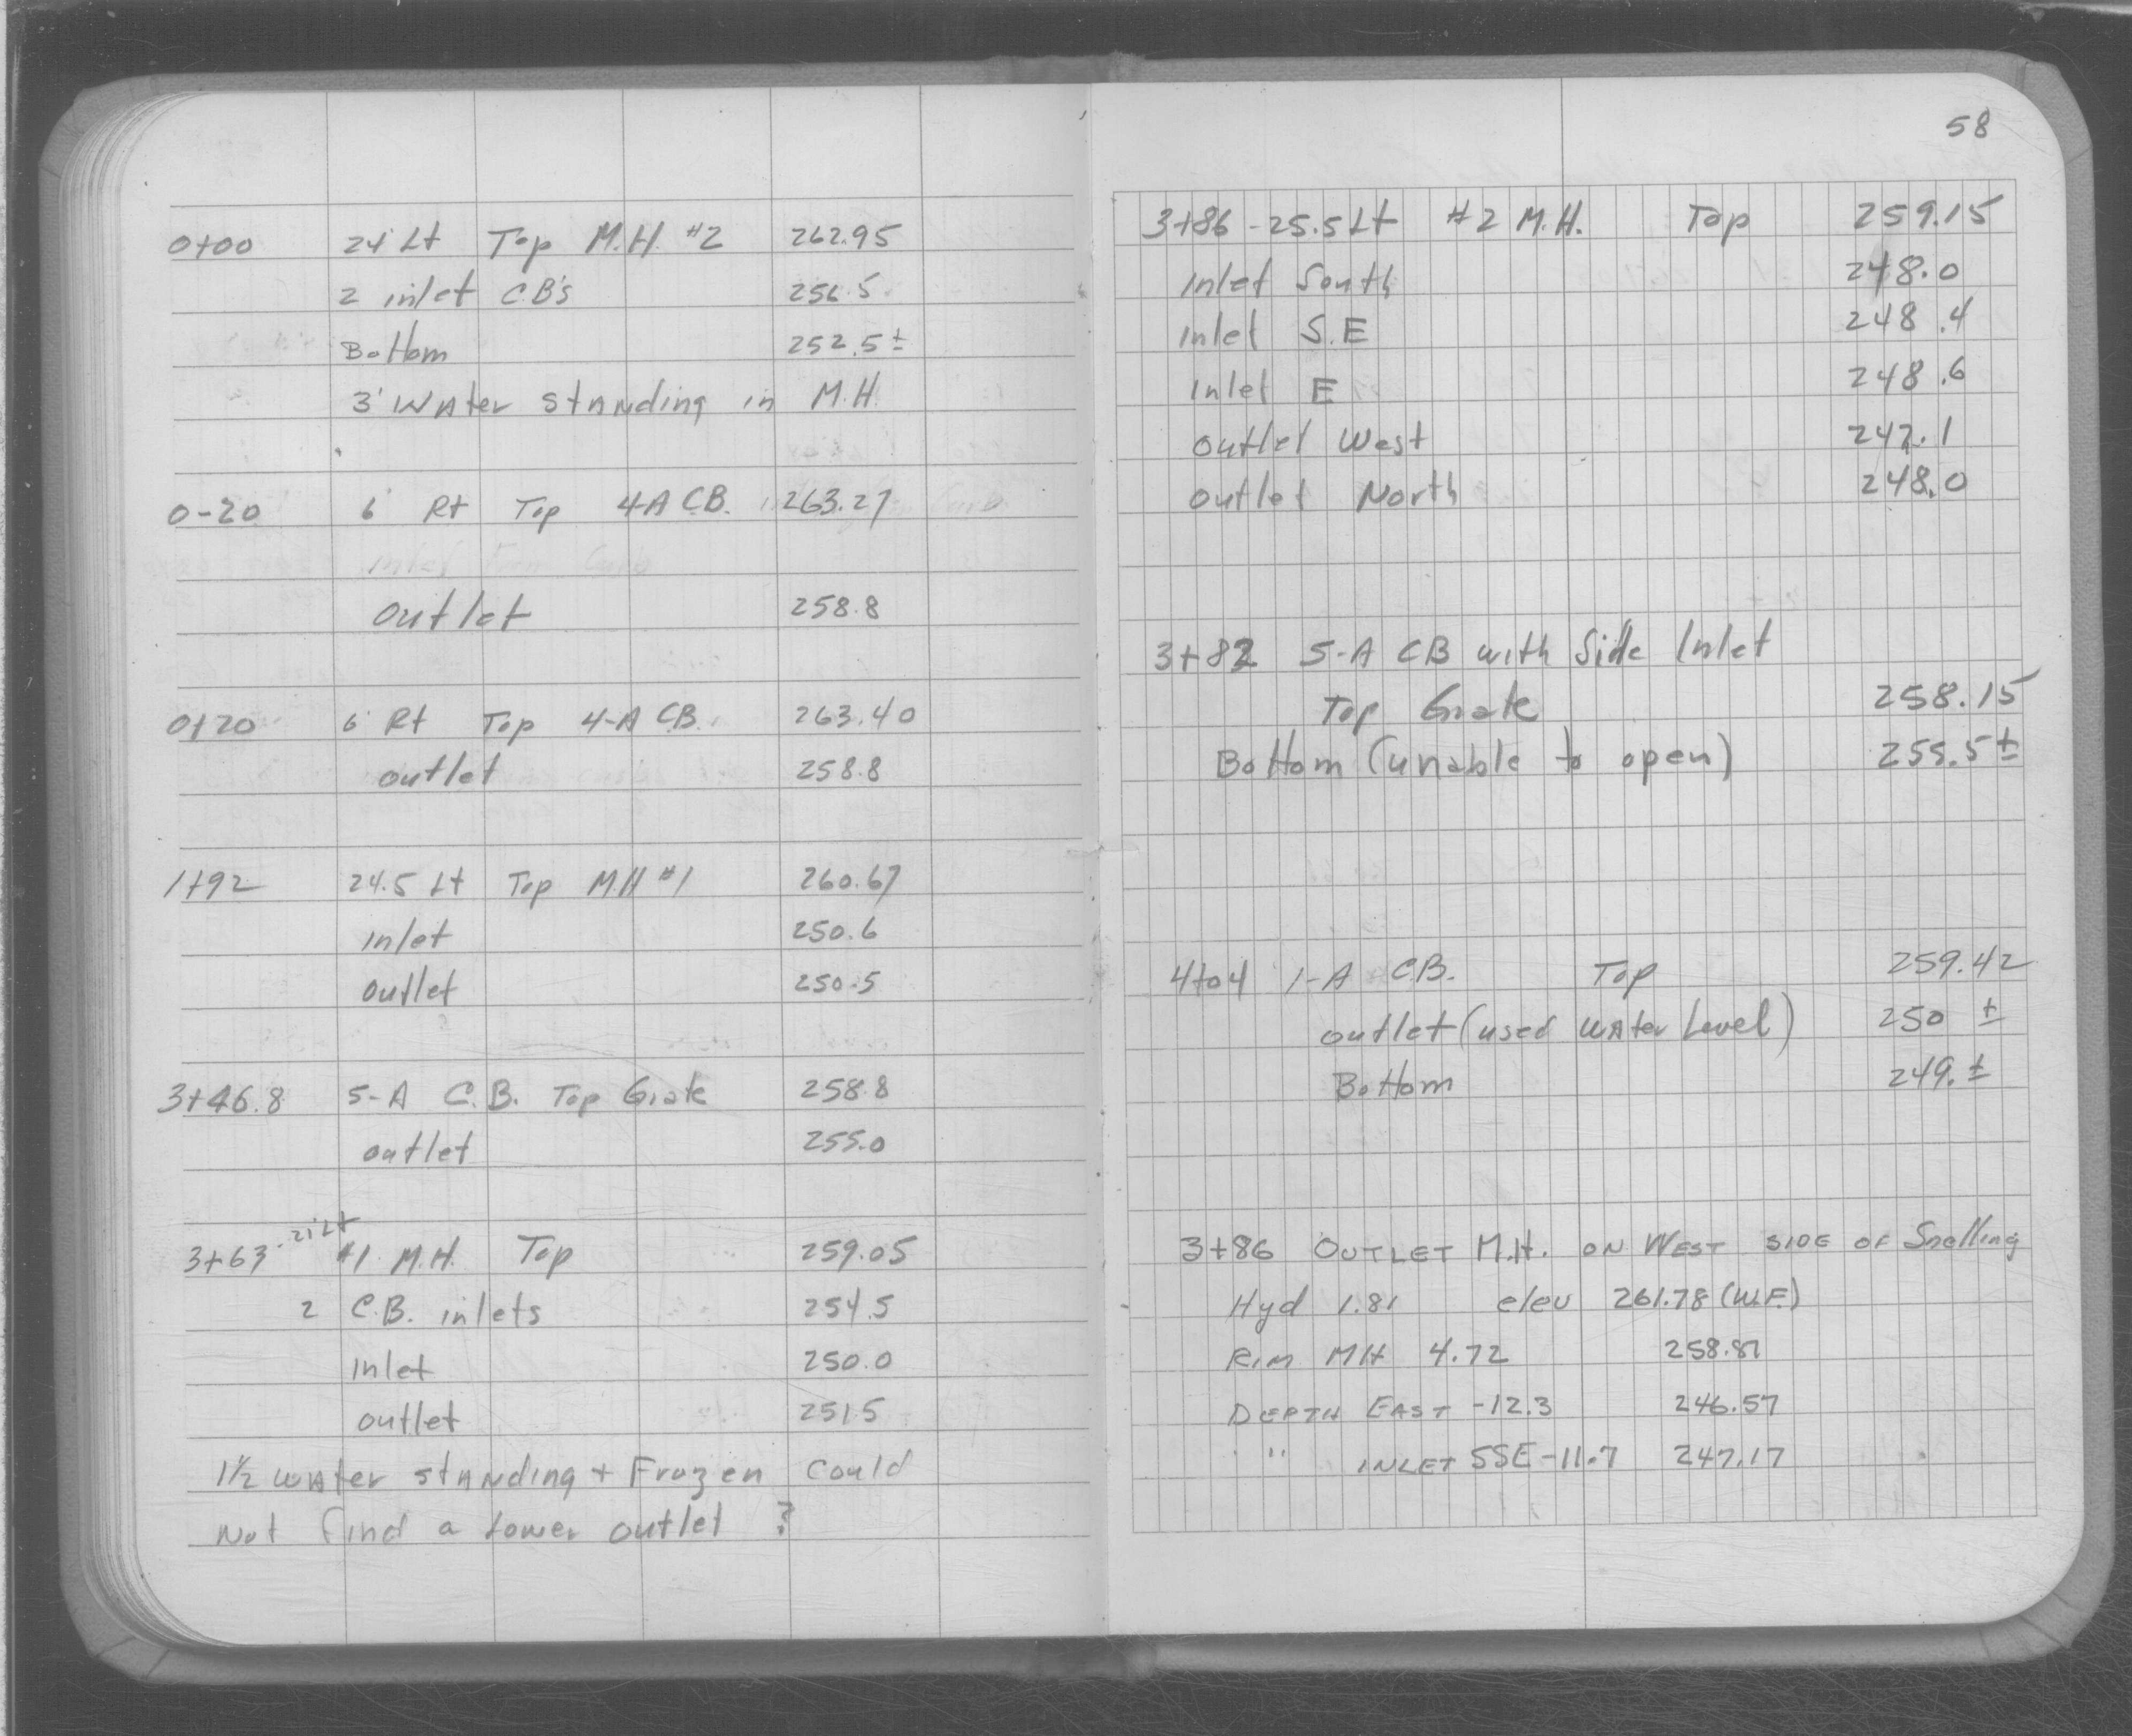 0+00 24' Lt Top M.H. #2 262.95
2 inlet CB's 256.5
Bottom 252.5±
3' Water standing in M.H.
0-20 6' Rt Top 4-A C.B. 263.27
Inlet From
outlet 258.8
0+20 6' Rt Top 4-A CB. 263.40
outlet 258.8
1+92 24.5 Lt Top MH #1 260.67
inlet 250.6
outlet 250.5
3+46.8 5-A C.B. Top Grate 258.8
outlet 255.0
3+63 - 21' Lt #1 M.H. Top 259.05
2 C.B. inlets 254.5
Inlet 250.0
outlet 251.5
1½ water standing + Frozen could
Not find a lower outlet ?
58
3+86 - 25.5 Lt #2 M.H. Top 259.15
Inlet South 248.0
Inlet S.E 248.4
Inlet E 248.6
outlet West 247.1
outlet North 248.0
3+82 5-A CB with Side Inlet
Top Grate 258.15
Bottom (unable to open) 255.5±
4+04 1-A C.B. Top 259.42
outlet (used water Level) 250 ±
Bottom 249.±
3+86 OUTLET M.H. ON WEST SIDE OF Snelling
Hyd 1.81 elev 261.78 (W.F.)
RIM MH 4.72 258.87
DEPTH EAST -12.3 246.57
" INLET SSE -11.7 247.17